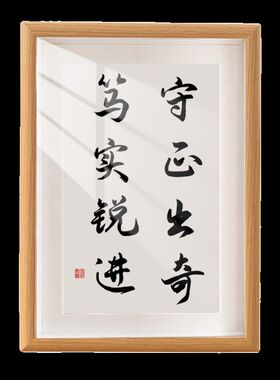 守正出奇
笃实锐进